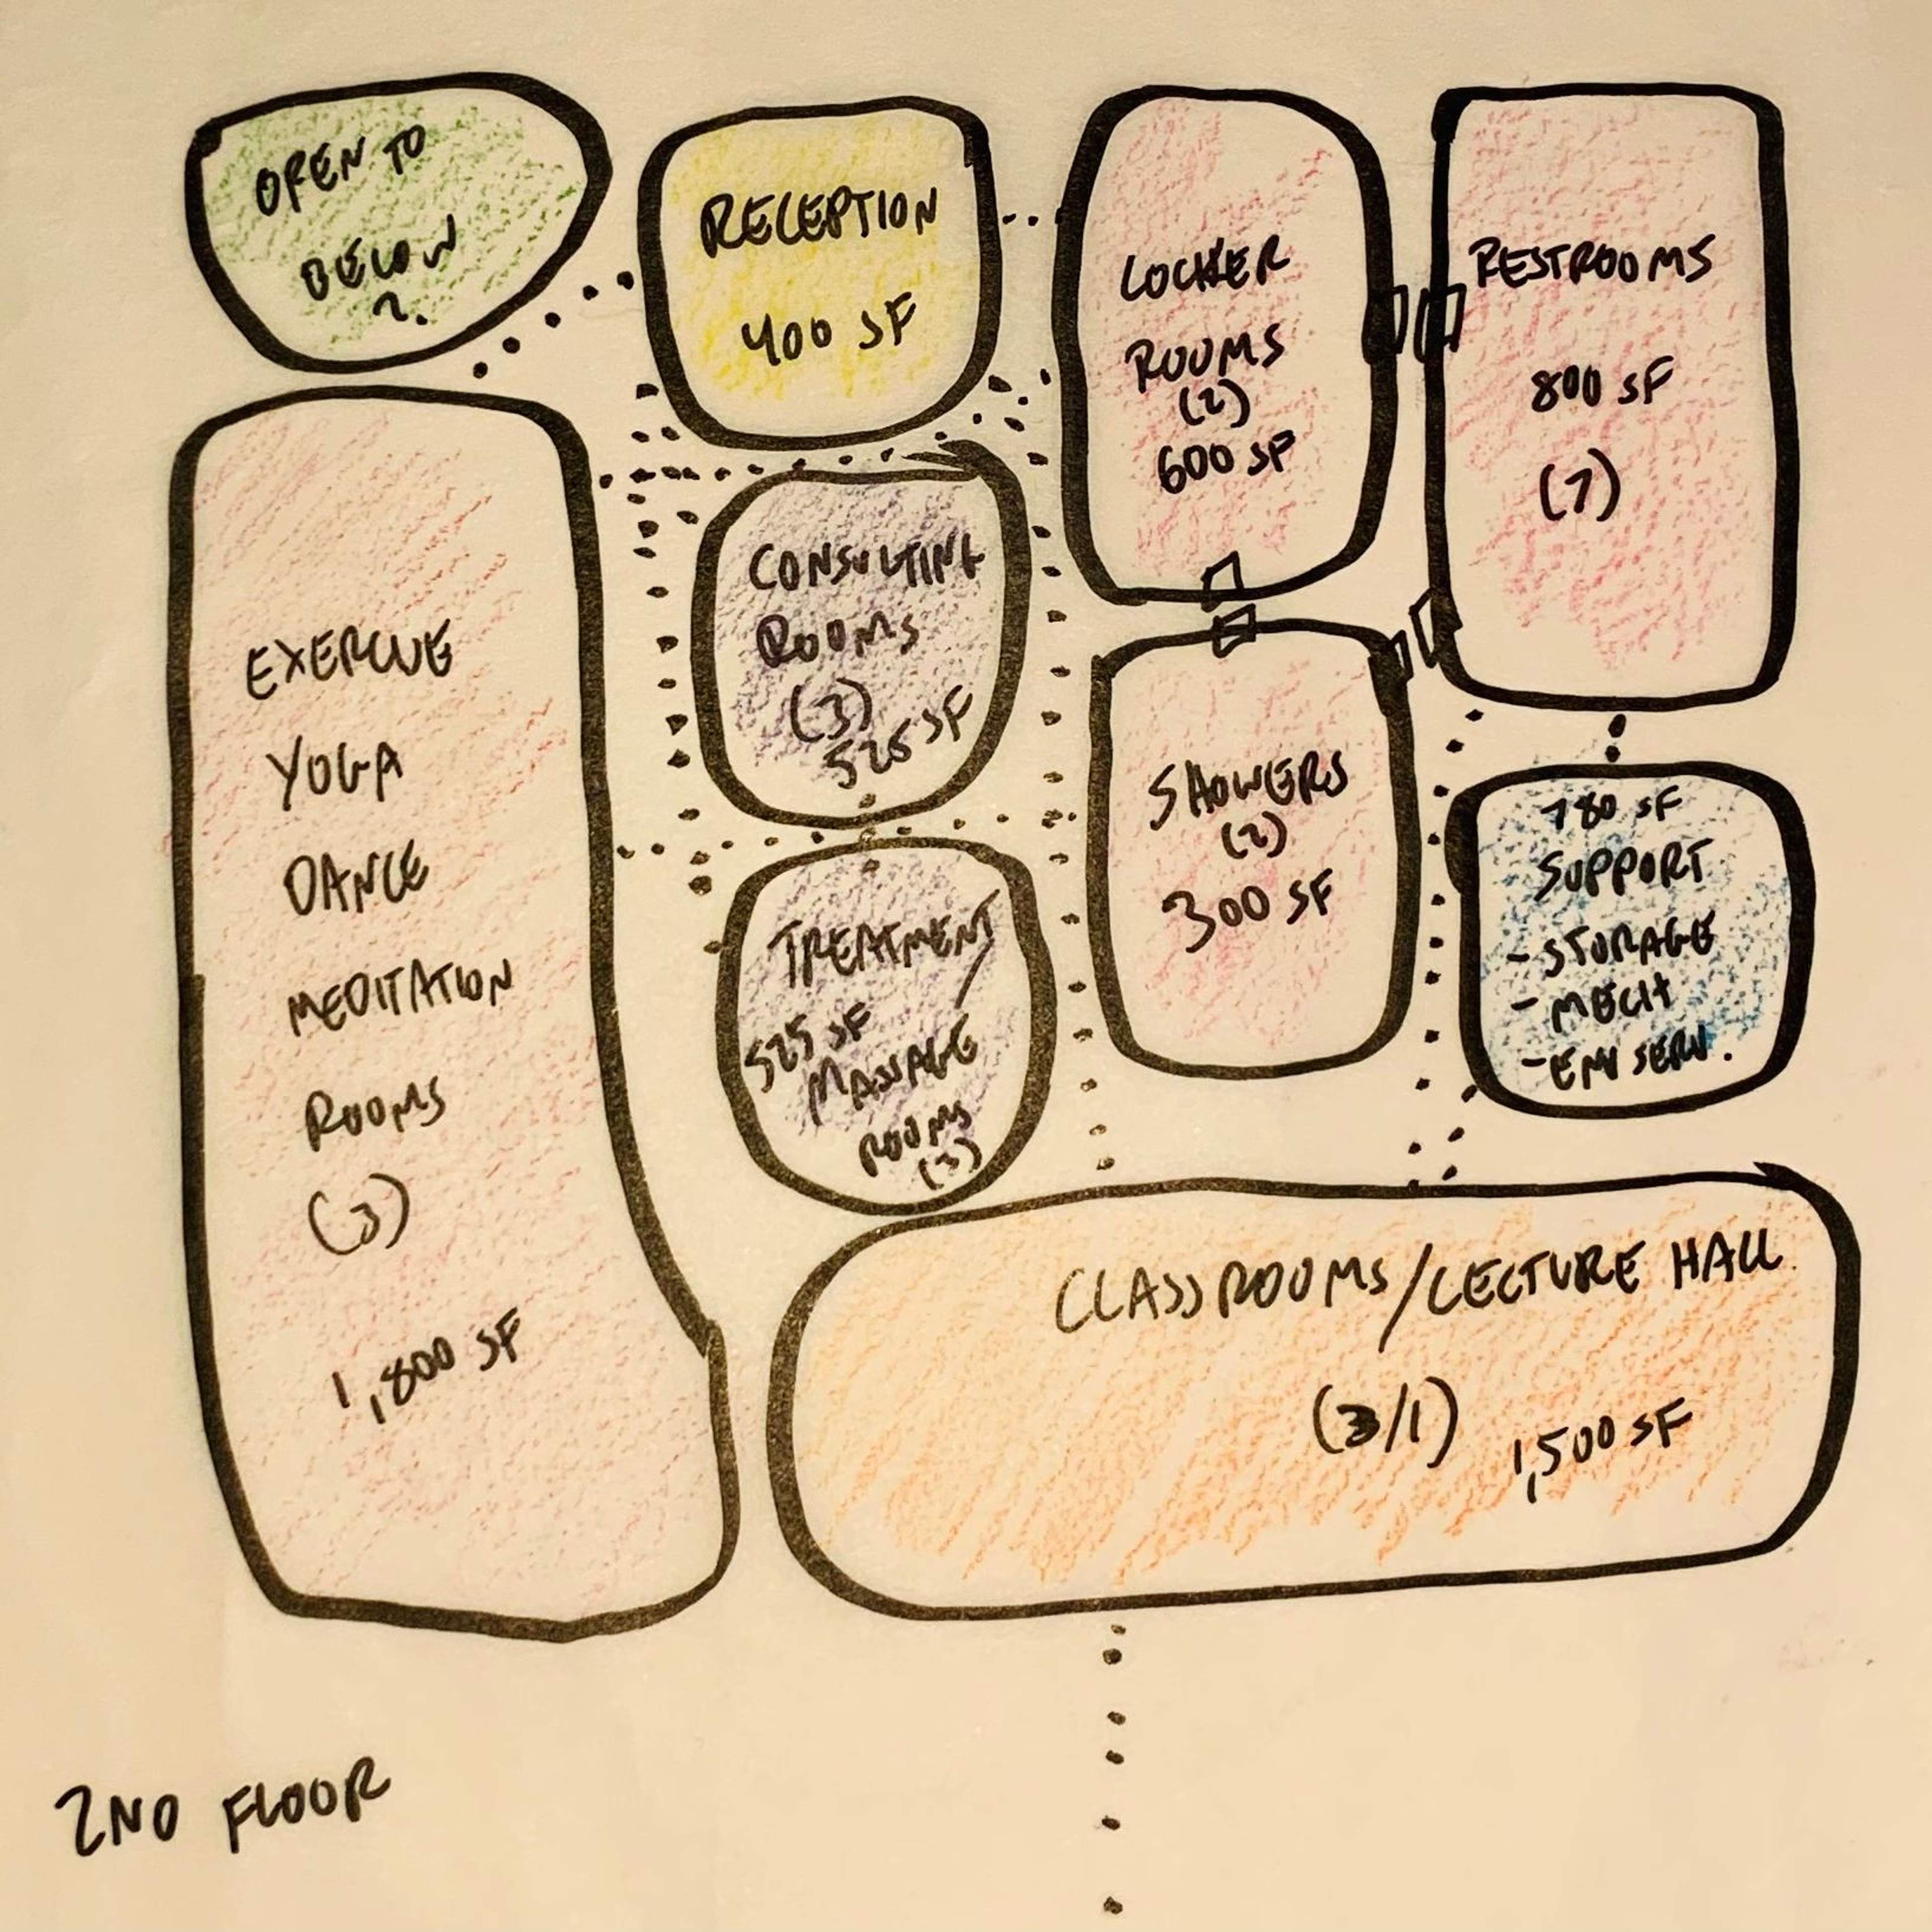 OPEN TO
BELOW
?
RECEPTION
400 SF
LOCKER
ROOMS
(2)
600 SF
RESTROOMS
800 SF
(7)
EXERCISE
YOGA
DANCE
MEDITATION
ROOMS
(3)
1,800 SF
CONSULTING
ROOMS
(3)
525 SF
TREATMENT/
525 SF
MASSAGE
ROOMS
(3)
SHOWERS
(2)
300 SF
780 SF
SUPPORT
- STORAGE
- MECH
- ENV SERV.
CLASSROOMS/LECTURE HALL
(3/1) 1,500 SF
2ND FLOOR